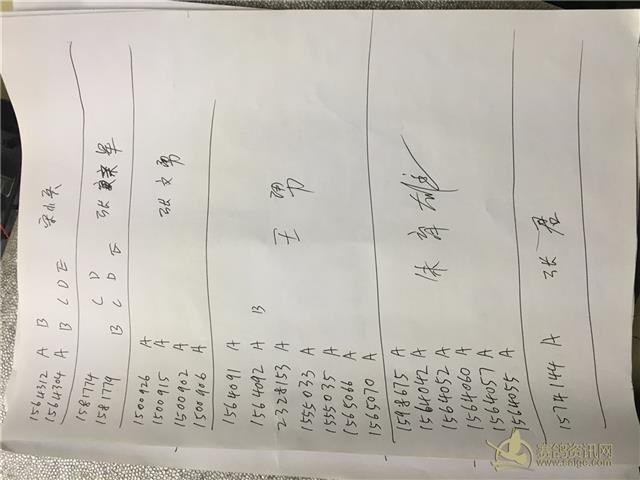 1564312 A B
1564304 A B C D E
1581774 C D
1581779 B C D E 张
1500926 A
1500915 A 张文勇
1500902 A
1500906 A
1564091 A
1564092 A B
2324153 A 王勇
1555033 A
1555035 A
1565066 A
1565070 A
1598675 A
1564042 A
1564052 A
1564060 A
1564057 A
1564055 A
1574144 A 张君
赛鸽资讯网
www.saige.com